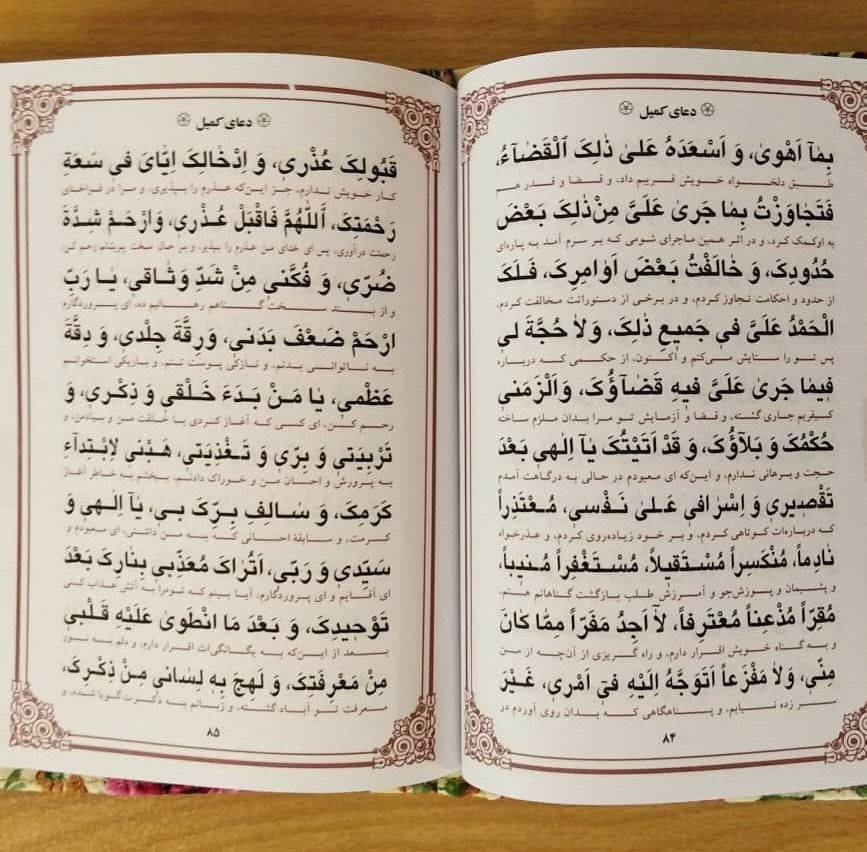 دعای کمیل
بِمٰٓا اَهْویٰ، وَ اَسْعَدَهُ عَلیٰ ذٰلِکَ الْقَضٰٓاءُ،
طبق دلخواه خویش فریبم داد، و قضا و قدر هم
فَتَجٰاوَزْتُ بِمٰا جَریٰ عَلَیَّ مِنْ ذٰلِکَ بَعْضَ
به او کمک کرد، و در اثر همین ماجرای شومی که بر سرم آمد به پاره‌ای
حُدُودِکَ، وَ خٰالَفْتُ بَعْضَ اَوٰامِرِکَ، فَلَکَ
از حدود و احکامت تجاوز کردم، و در برخی از دستوراتت مخالفت کردم.
الْحَمْدُ عَلَیَّ فی جَمیعِ ذٰلِکَ، وَلٰا حُجَّةَ لی
پس تو را ستایش می‌کنم و اکنون، از حکمی که درباره
فیمٰا جَریٰ عَلَیَّ فیهِ قَضٰٓاؤُکَ، وَ اَلْزَمَنی
کیفرم جاری گشته، و قضا و آزمایش تو مرا بدان ملزم ساخته
حُکْمُکَ وَ بَلٰٓاؤُکَ، وَ قَدْ اَتَیْتُکَ یٰٓا اِلٰهی بَعْدَ
حجت و برهانی ندارم، و این‌که ای معبودم در حالی به درگاهت آمدم
تَقْصیری وَ اِسْرٰافی عَلیٰ نَفْسی، مُعْتَذِراً
که درباره‌ات کوتاهی کردم، و بر خود زیاده‌روی کردم، و عذرخواه
نٰادِماً، مُنْکَسِراً مُسْتَقیلاً، مُسْتَغْفِراً مُنیباً،
و پشیمان و پوزش‌جو و آمرزش طلب بازگشت گناهانم هستم،
مُقِرّاً مُذْعِناً مُعْتَرِفاً، لٰٓا اَجِدُ مَفَرّاً مِمّٰا کٰانَ
و به گناه خویش اقرار دارم، و راه گریزی از آن‌چه از من
مِنّی، وَلٰا مَفْزَعاً اَتَوَجَّهُ اِلَیْهِ فیٓ اَمْری، غَیْرَ
سر زده نیابم، و پناهگاهی که بدان روی آوردم در
۸۴
دعای کمیل
قَبُولِکَ عُذْری، وَ اِدْخٰالِکَ اِیّٰایَ فی سَعَةِ
کار خویش ندارم، جز این‌که عذرم را بپذیری، و مرا در فراخنای
رَحْمَتِکَ، اَللّٰهُمَّ فَاقْبَلْ عُذْری، وَارْحَمْ شِدَّةَ
رحمتت درآوری، پس ای خدای من عذرم را بپذیر، و بر حال سخت پریشانم رحم کن،
ضُرّی، وَ فُکَّنی مِنْ شَدِّ وَثٰاقی، یٰا رَبِّ
و از بند سخت گناهم رهانیم ده، ای پروردگارم
ارْحَمْ ضَعْفَ بَدَنی، وَرِقَّةَ جِلْدی، وَ دِقَّةَ
به ناتوانی بدنم، و نازکی پوست تنم، و باریکی استخوانم
عَظْمی، یٰا مَنْ بَدَءَ خَلْقی وَ ذِکْری، وَ
رحم کن، ای کسی که آغاز کردی با خلقت من و بیادمن، و
تَرْبِیَتی وَ بِرّی وَ تَغْذِیَتی، هَبْنی لِاِبْتِدٰٓاءِ
به پرورش و احسان من و خوراک دادنم، ببخشم به خاطر آغاز
کَرَمِکَ، وَ سٰالِفِ بِرِّکَ بی، یٰٓا اِلٰهی وَ
کرمت، و سابقهٔ احسانی که به من داشتی، ای معبودم و
سَیِّدی وَ رَبّی، اَتُرٰاکَ مُعَذِّبی بِنٰارِکَ بَعْدَ
ای آقایم و ای پروردگارم، آیا ببینم که تو مرا به آتش عذاب کنی
تَوْحیدِکَ، وَ بَعْدَ مَا انْطَویٰ عَلَیْهِ قَلْبی
بعد از این‌که به یگانگی‌ات اقرار دارم، و دلم به نور
مِنْ مَعْرِفَتِکَ، وَ لَهِجَ بِهِ لِسٰانی مِنْ ذِکْرِکَ،
معرفت تو آباد گشته، و زبانم به ذکرت گویا شده، و
۸۵